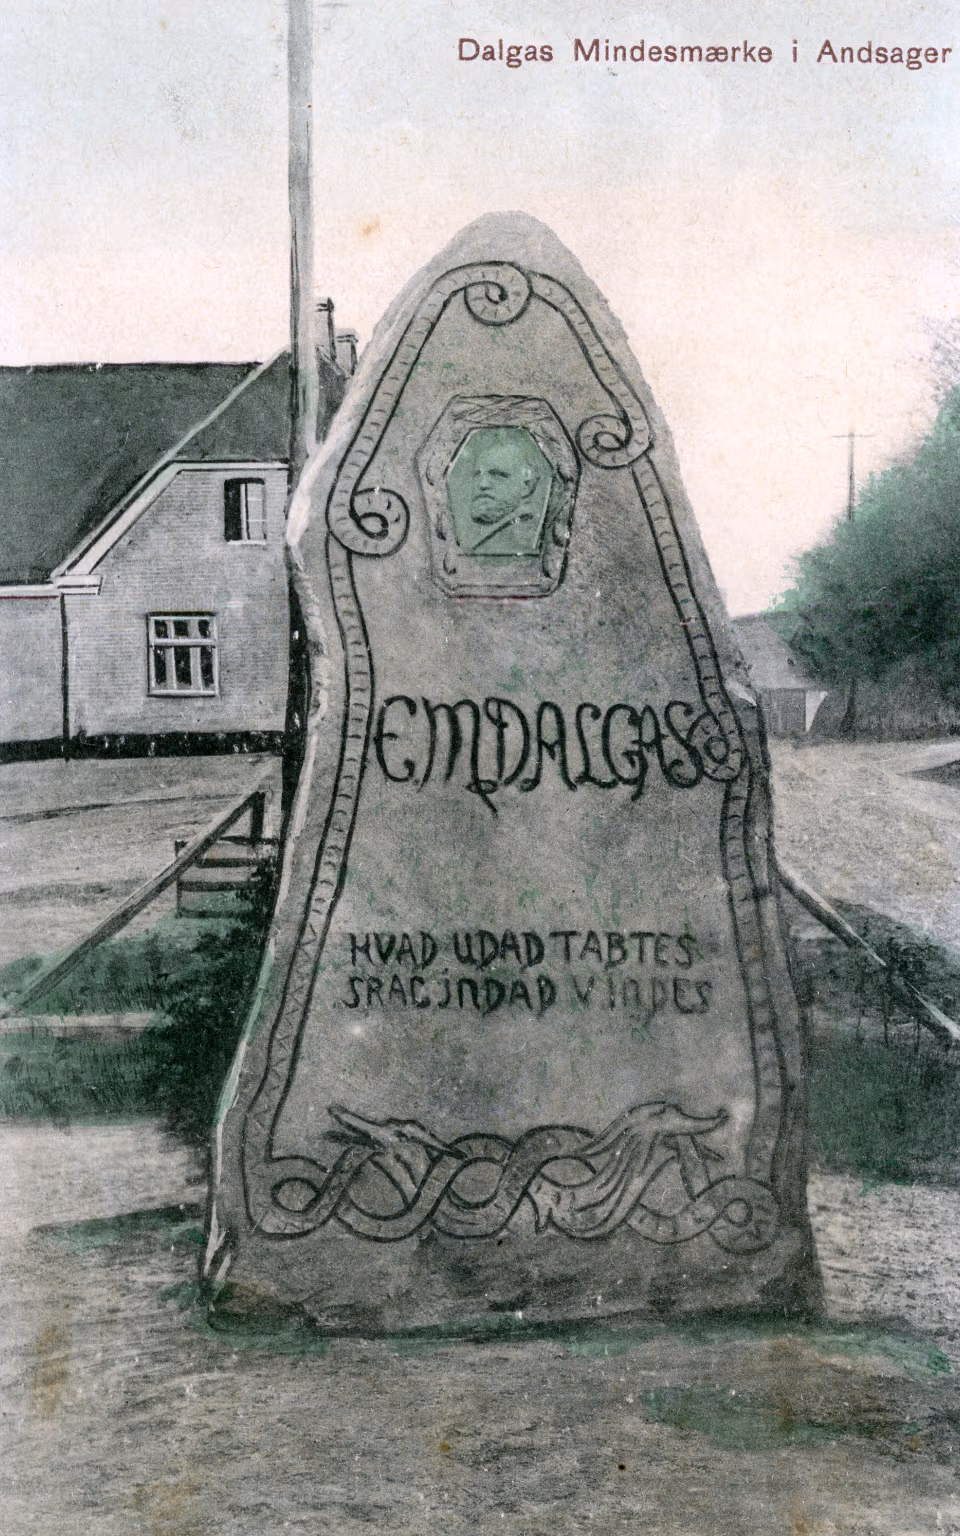 Dalgas Mindesmærke i Andsager
EMDALGAS
HVAD UDAD TABTES
SKAL INDAD VINDES